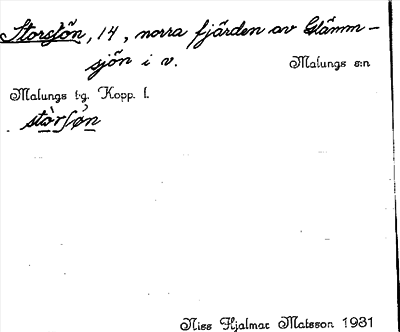 Storsjön, 14, norra fjärden av Glämm-
sjön i v.
Malungs s:n
Malungs tg. Kopp. l.
Niss Hjalmar Matsson 1931